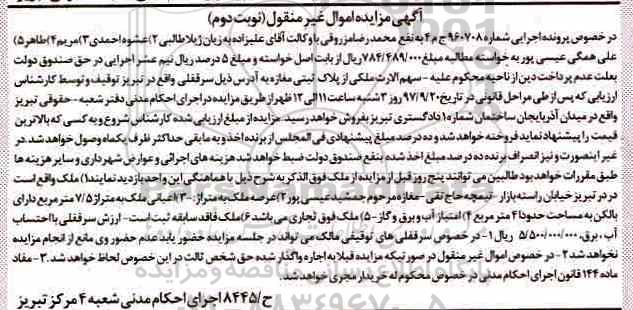 آگهی مزایده اموال غیر منقول (نوبت دوم)
در خصوص پرونده اجرایی شماره ۹۶۰۷۰۸ ج م ۴ به نفع محمدرضا مزروقی با وکالت آقای علیزاده به زیان ژیلا طالبی ۲) عشوه احمدی ۳) مریم ۴) طاهر ۵)
علی همگی عیسی پور به خواسته مطالبه مبلغ ۷۸۴/۴۸۹/۰۰۰ ریال از بابت اصل خواسته و مبلغ ۵ درصد ریال نیم عشر اجرایی در حق صندوق دولت
بعلت عدم پرداخت دین از ناحیه محکوم علیه - سهم الارث ملکی از پلاک ثبتی مغازه به آدرس ذیل سرقفلی واقع در تبریز توقیف و توسط کارشناس
ارزیابی که پس از طی مراحل قانونی در تاریخ ۹۷/۹/۲۰ روز ۳ شنبه ساعت ۱۱ الی ۱۲ ظهر از طریق مزایده در اجرای احکام مدنی دفتر شعبه - حقوقی تبریز
واقع در میدان آذربایجان ساختمان شماره ۱ دادگستری تبریز بفروش خواهد رسید. مزایده از مبلغ ارزیابی شده کارشناس شروع و به کسی که بالاترین
قیمت را پیشنهاد نماید فروخته خواهد شد و ده درصد مبلغ پیشنهادی فی المجلس از برنده اخذ و به مابقی حداکثر ظرف یکماه وصول خواهد شد. در
غیر اینصورت و نیز انصراف برنده ده درصد مبلغ اخذ شده بنفع صندوق دولت ضبط خواهد شد هزینه های اجرائی و عوارض شهرداری و سایر هزینه ها
طبق مقررات خواهد بود طالبین می توانند پنج روز قبل از مزایده از ملک فوق الذکر به شرح ذیل با هماهنگی این واحد بازدید نمایند ۱) ملک واقع است
در در تبریز خیابان راسته بازار - تیمچه حاج تقی - مغازه مرحوم جمشید عیسی پور ۲) عرصه ملک به متراژ: - ۳) اعیانی ملک به متراژ ۷/۵ متر مربع دارای
بالکن به مساحت حدودا ۴ متر مربع ۴) امتیاز آب و برق و گاز - ۵) ملک فوق تجاری می باشد ۶) ملک فاقد سابقه ثبت است - ارزش سرقفلی با احتساب
آب، برق، ۵/۵۰۰/۰۰۰/۰۰۰ ریال ۱- در خصوص سرقفلی های توقیفی مالک می تواند در جلسه مزایده حضور یابد عدم حضور وی مانع از انجام مزایده
نخواهد شد ۲- در خصوص اموال غیر منقول در صورتیکه مزایده قبلا به اجاره واگذار شده حق شخص ثالث در این خصوص لحاظ خواهد شد. ۳- مفاد
ماده ۱۴۴ قانون اجرای احکام مدنی در خصوص محکوم له خریدار مجری خواهد شد.
ح/۸۴۴۵ اجرای احکام مدنی شعبه ۴ مرکز تبریز